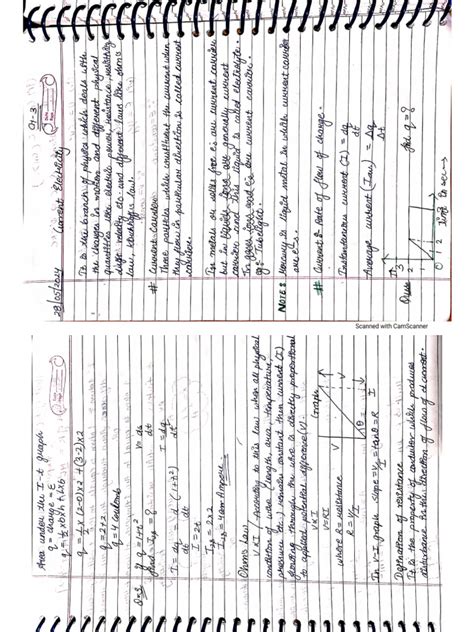 28/05/2024
Current Electricity
It is the branch of physics which deals with
the charges in motion and different physical
quantities like electric power, resistance, resistivity
etc. and different laws like ohm's
law, kirchhoff's law.
# Current carrier
Those particles which constitutes the current when
they flow in particular direction is called current
carriers.
In metals or wires free e⁻s are current carriers
but in liquids ions are generally current
carrier and this liquid is called electrolyte.
In gases ions and e⁻s are current carrier.
eg: Tubelight.
NOTE: Mercury is liquid metal in which current carrier
are e⁻s.
# Current: Rate of flow of charge.
Instantaneous current (I) = dq/dt
Average current (Iav) = Δq/Δt
Ques
find q = ?
3
2
1
0 1 2 3
Area under the I-t graph
q = change = Σ
q = 1/2 × (2-0) × 2 + (3-2) × 2
q = 2+2
q = 4 Coulomb
Q=2 If q = 1+t²
find I = ?
I = dq/dt
I = dq/dt = d/dt (1+t²)
I = 2t
I = 2×2
I = 4 Ampere
Ohms law
V ∝ I (According to this law when all physical
condition of wire (length, area, temperature,
pressure etc.) remains constant then current (I)
flowing through the wire is directly proportional
to applied potential difference (V).
V ∝ I
V = RI
where R = resistance
R = V/I
Graph
V
I
In V-I graph slope = V/I = tanθ = R
Defination of resistance
It is the property of conductor which produces
disturbance in the direction of flow of current.
Scanned with CamScanner